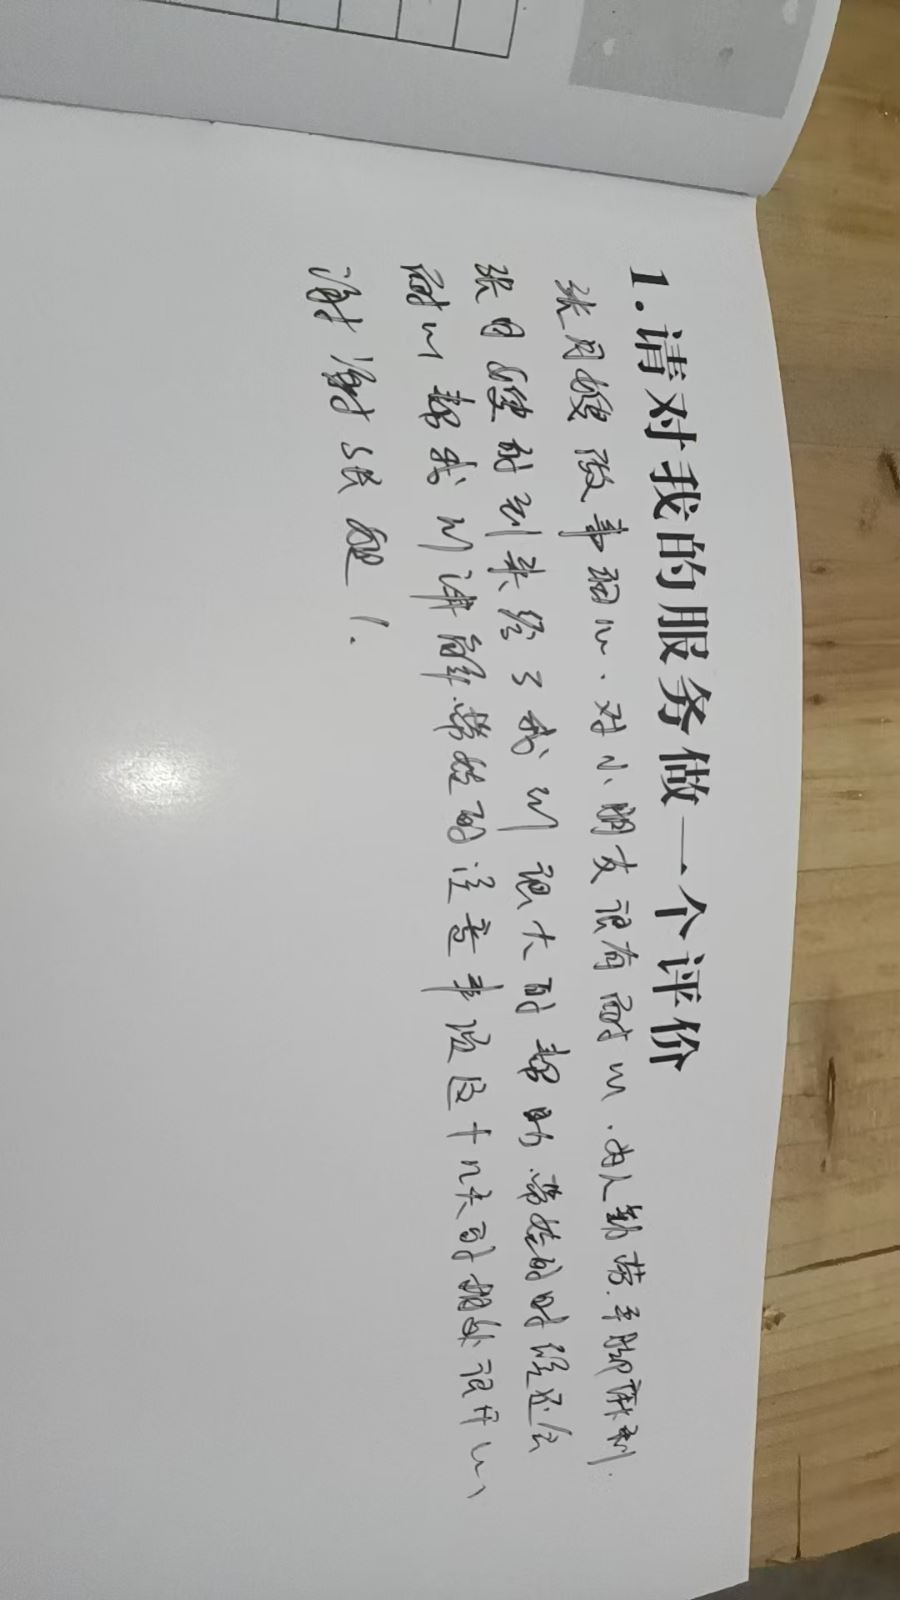 1.请对我的服务做一个评价
张月嫂做事细心.对小朋友很有耐心.为人勤劳.手脚麻利.
张月嫂的到来给了我们很大的帮助.带娃的时候还会
耐心帮我们讲解带娃的注意事项这十几天的相处很开心,
谢谢张姐!.